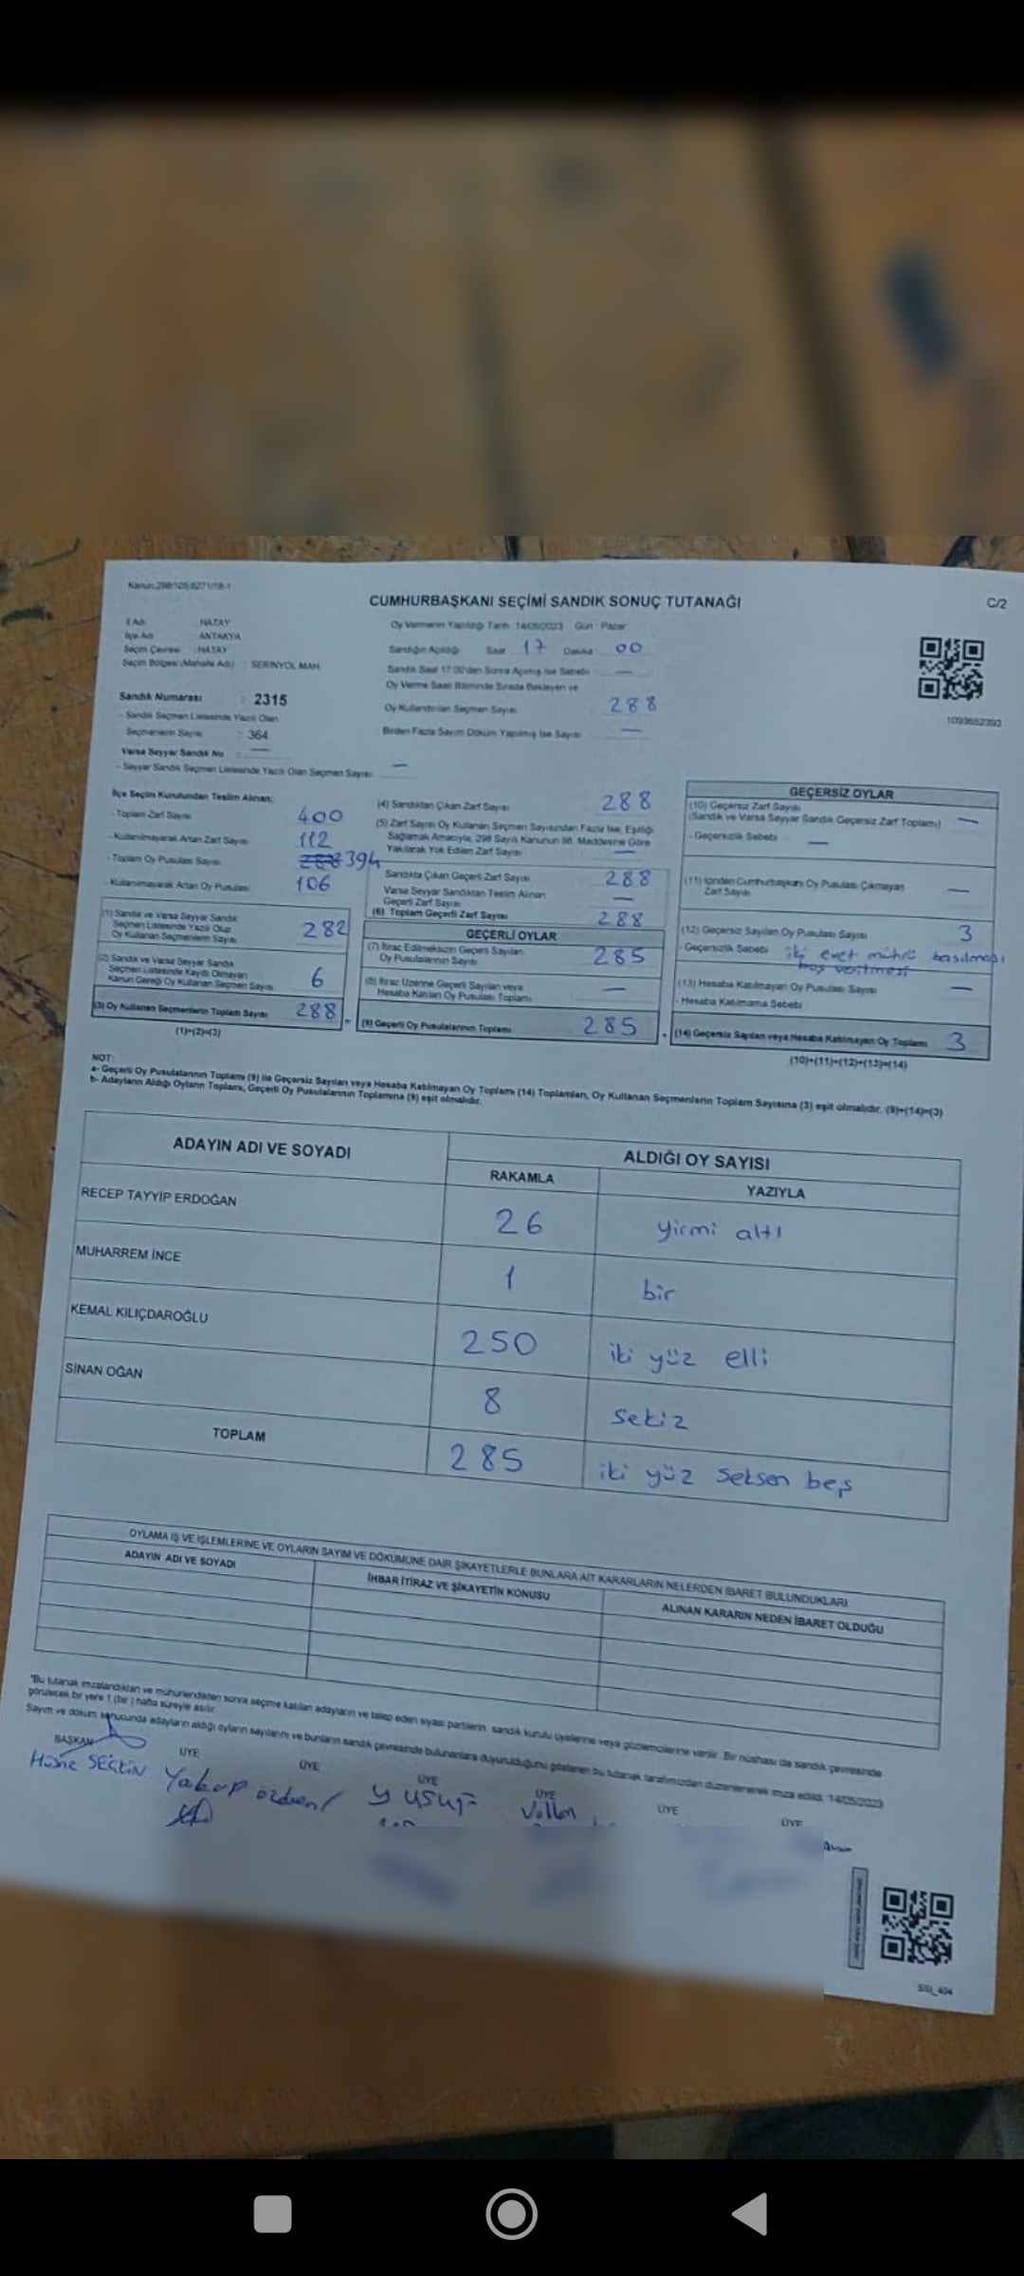 Kanun:298/105,6271/18-1
CUMHURBAŞKANI SEÇİMİ SANDIK SONUÇ TUTANAĞI
C/2
İl Adı : HATAY
İlçe Adı : ANTAKYA
Seçim Çevresi : HATAY
Seçim Bölgesi (Mahalle Adı) : SERİNYOL MAH.
Oy Vermenin Yapıldığı Tarih: 14/05/2023 Gün: Pazar
Sandığın Açıldığı Saat 17 Dakika 00
Sandık Saat 17.00'den Sonra Açılmış İse Sebebi —
Oy Verme Saati Bitiminde Sırada Bekleyen ve
Oy Kullandırılan Seçmen Sayısı 288
Birden Fazla Sayım Döküm Yapılmış İse Sayısı —
1093652393
Sandık Numarası : 2315
- Sandık Seçmen Listesinde Yazılı Olan
Seçmenlerin Sayısı : 364
Varsa Seyyar Sandık No : —
- Seyyar Sandık Seçmen Listesinde Yazılı Olan Seçmen Sayısı: —
İlçe Seçim Kurulundan Teslim Alınan;
- Toplam Zarf Sayısı 400
- Kullanılmayarak Artan Zarf Sayısı 112
- Toplam Oy Pusulası Sayısı 288 394
- Kullanılmayarak Artan Oy Pusulası 106
(1) Sandık ve Varsa Seyyar Sandık
Seçmen Listesinde Yazılı Olup
Oy Kullanan Seçmenlerin Sayısı 282
(2) Sandık ve Varsa Seyyar Sandık
Seçmen Listesinde Kaydı Olmayan
Kanun Gereği Oy Kullanan Seçmen Sayısı 6
(3) Oy Kullanan Seçmenlerin Toplam Sayısı 288
(1)+(2)=(3)
(4) Sandıktan Çıkan Zarf Sayısı 288
(5) Zarf Sayısı Oy Kullanan Seçmen Sayısından Fazla İse, Eşitliği
Sağlamak Amacıyla, 298 Sayılı Kanunun 98. Maddesine Göre
Yakılarak Yok Edilen Zarf Sayısı —
Sandıkta Çıkan Geçerli Zarf Sayısı 288
Varsa Seyyar Sandıktan Teslim Alınan
Geçerli Zarf Sayısı —
(6) Toplam Geçerli Zarf Sayısı 288
GEÇERLİ OYLAR
(7) İtiraz Edilmeksizin Geçerli Sayılan
Oy Pusulalarının Sayısı 285
(8) İtiraz Üzerine Geçerli Sayılan veya
Hesaba Katılan Oy Pusulası Toplamı —
(9) Geçerli Oy Pusulalarının Toplamı 285
GEÇERSİZ OYLAR
(10) Geçersiz Zarf Sayısı
(Sandık ve Varsa Seyyar Sandık Geçersiz Zarf Toplamı) —
- Geçersizlik Sebebi —
(11) İçinden Cumhurbaşkanı Oy Pusulası Çıkmayan
Zarf Sayısı —
(12) Geçersiz Sayılan Oy Pusulası Sayısı 3
- Geçersizlik Sebebi iki evet mührü basılması
boş verilmesi
(13) Hesaba Katılmayan Oy Pusulası Sayısı —
- Hesaba Katılmama Sebebi
(14) Geçersiz Sayılan veya Hesaba Katılmayan Oy Toplamı 3
(10)+(11)+(12)+(13)=(14)
NOT:
a- Geçerli Oy Pusulalarının Toplamı (9) ile Geçersiz Sayılan veya Hesaba Katılmayan Oy Toplamı (14) Toplamları, Oy Kullanan Seçmenlerin Toplam Sayısına (3) eşit olmalıdır. (9)+(14)=(3)
b- Adayların Aldığı Oyların Toplamı, Geçerli Oy Pusulalarının Toplamına (9) eşit olmalıdır.
ADAYIN ADI VE SOYADI
ALDIĞI OY SAYISI
RAKAMLA YAZIYLA
RECEP TAYYİP ERDOĞAN 26 yirmi altı
MUHARREM İNCE 1 bir
KEMAL KILIÇDAROĞLU 250 iki yüz elli
SİNAN OĞAN 8 sekiz
TOPLAM 285 iki yüz seksen beş
OYLAMA İŞ VE İŞLEMLERİNE VE OYLARIN SAYIM VE DÖKÜMÜNE DAİR ŞİKAYETLERLE BUNLARA AİT KARARLARIN NELERDEN İBARET BULUNDUKLARI
ADAYIN ADI VE SOYADI
İHBAR İTİRAZ VE ŞİKAYETİN KONUSU
ALINAN KARARIN NEDEN İBARET OLDUĞU
"Bu tutanak imzalandıktan ve mühürlendikten sonra seçime katılan adayların ve talep eden siyasi partilerin sandık kurulu üyelerine veya gözlemcilerine verilir. Bir nüshası da sandık çevresinde
görülecek bir yere 1 (bir) hafta süreyle asılır.
Sayım ve döküm sonucunda adayların aldığı oyların sayılarını ve bunların sandık çevresinde bulunanlara duyurulduğunu gösteren bu tutanak tarafımızdan düzenlenerek imza edildi. 14/05/2023
BAŞKAN ÜYE ÜYE ÜYE ÜYE ÜYE ÜYE
SEÇKİN Yakup Yusuf
SSI_404